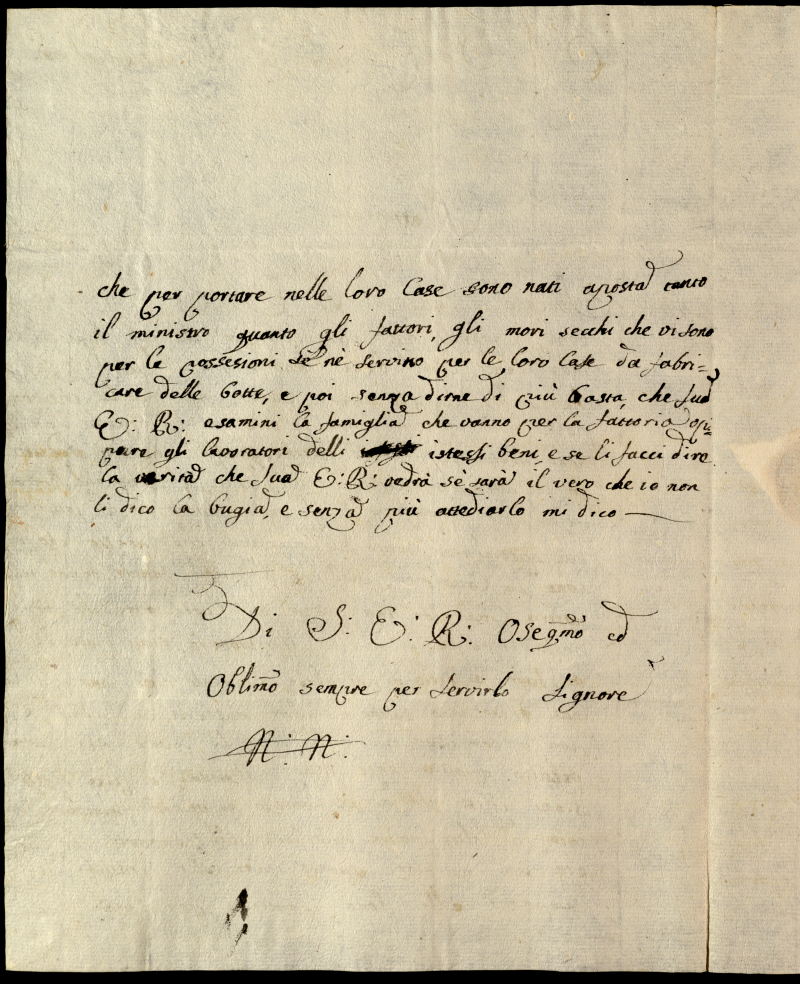 che per portare nelle loro Case sono nati aposta tanto
il ministro quanto gli fattori, gli mori secchi che vi sono
per le possesioni se nè servino per le loro Case da fabri-
care delle botte, e poi senza dirne di più basta, che sua
E: R: esamini la famiglia che vanno per la fattoria op-
pure gli lavoratori delli istessi beni, e se li facci dire
la verità che sua E: R: vedrà se sarà il vero che io non
li dico la bugia, e senza più attediarlo mi dico —
Di S: E: R: Osegmo ed
Oblimo sempre per servirlo Signore
N: N: